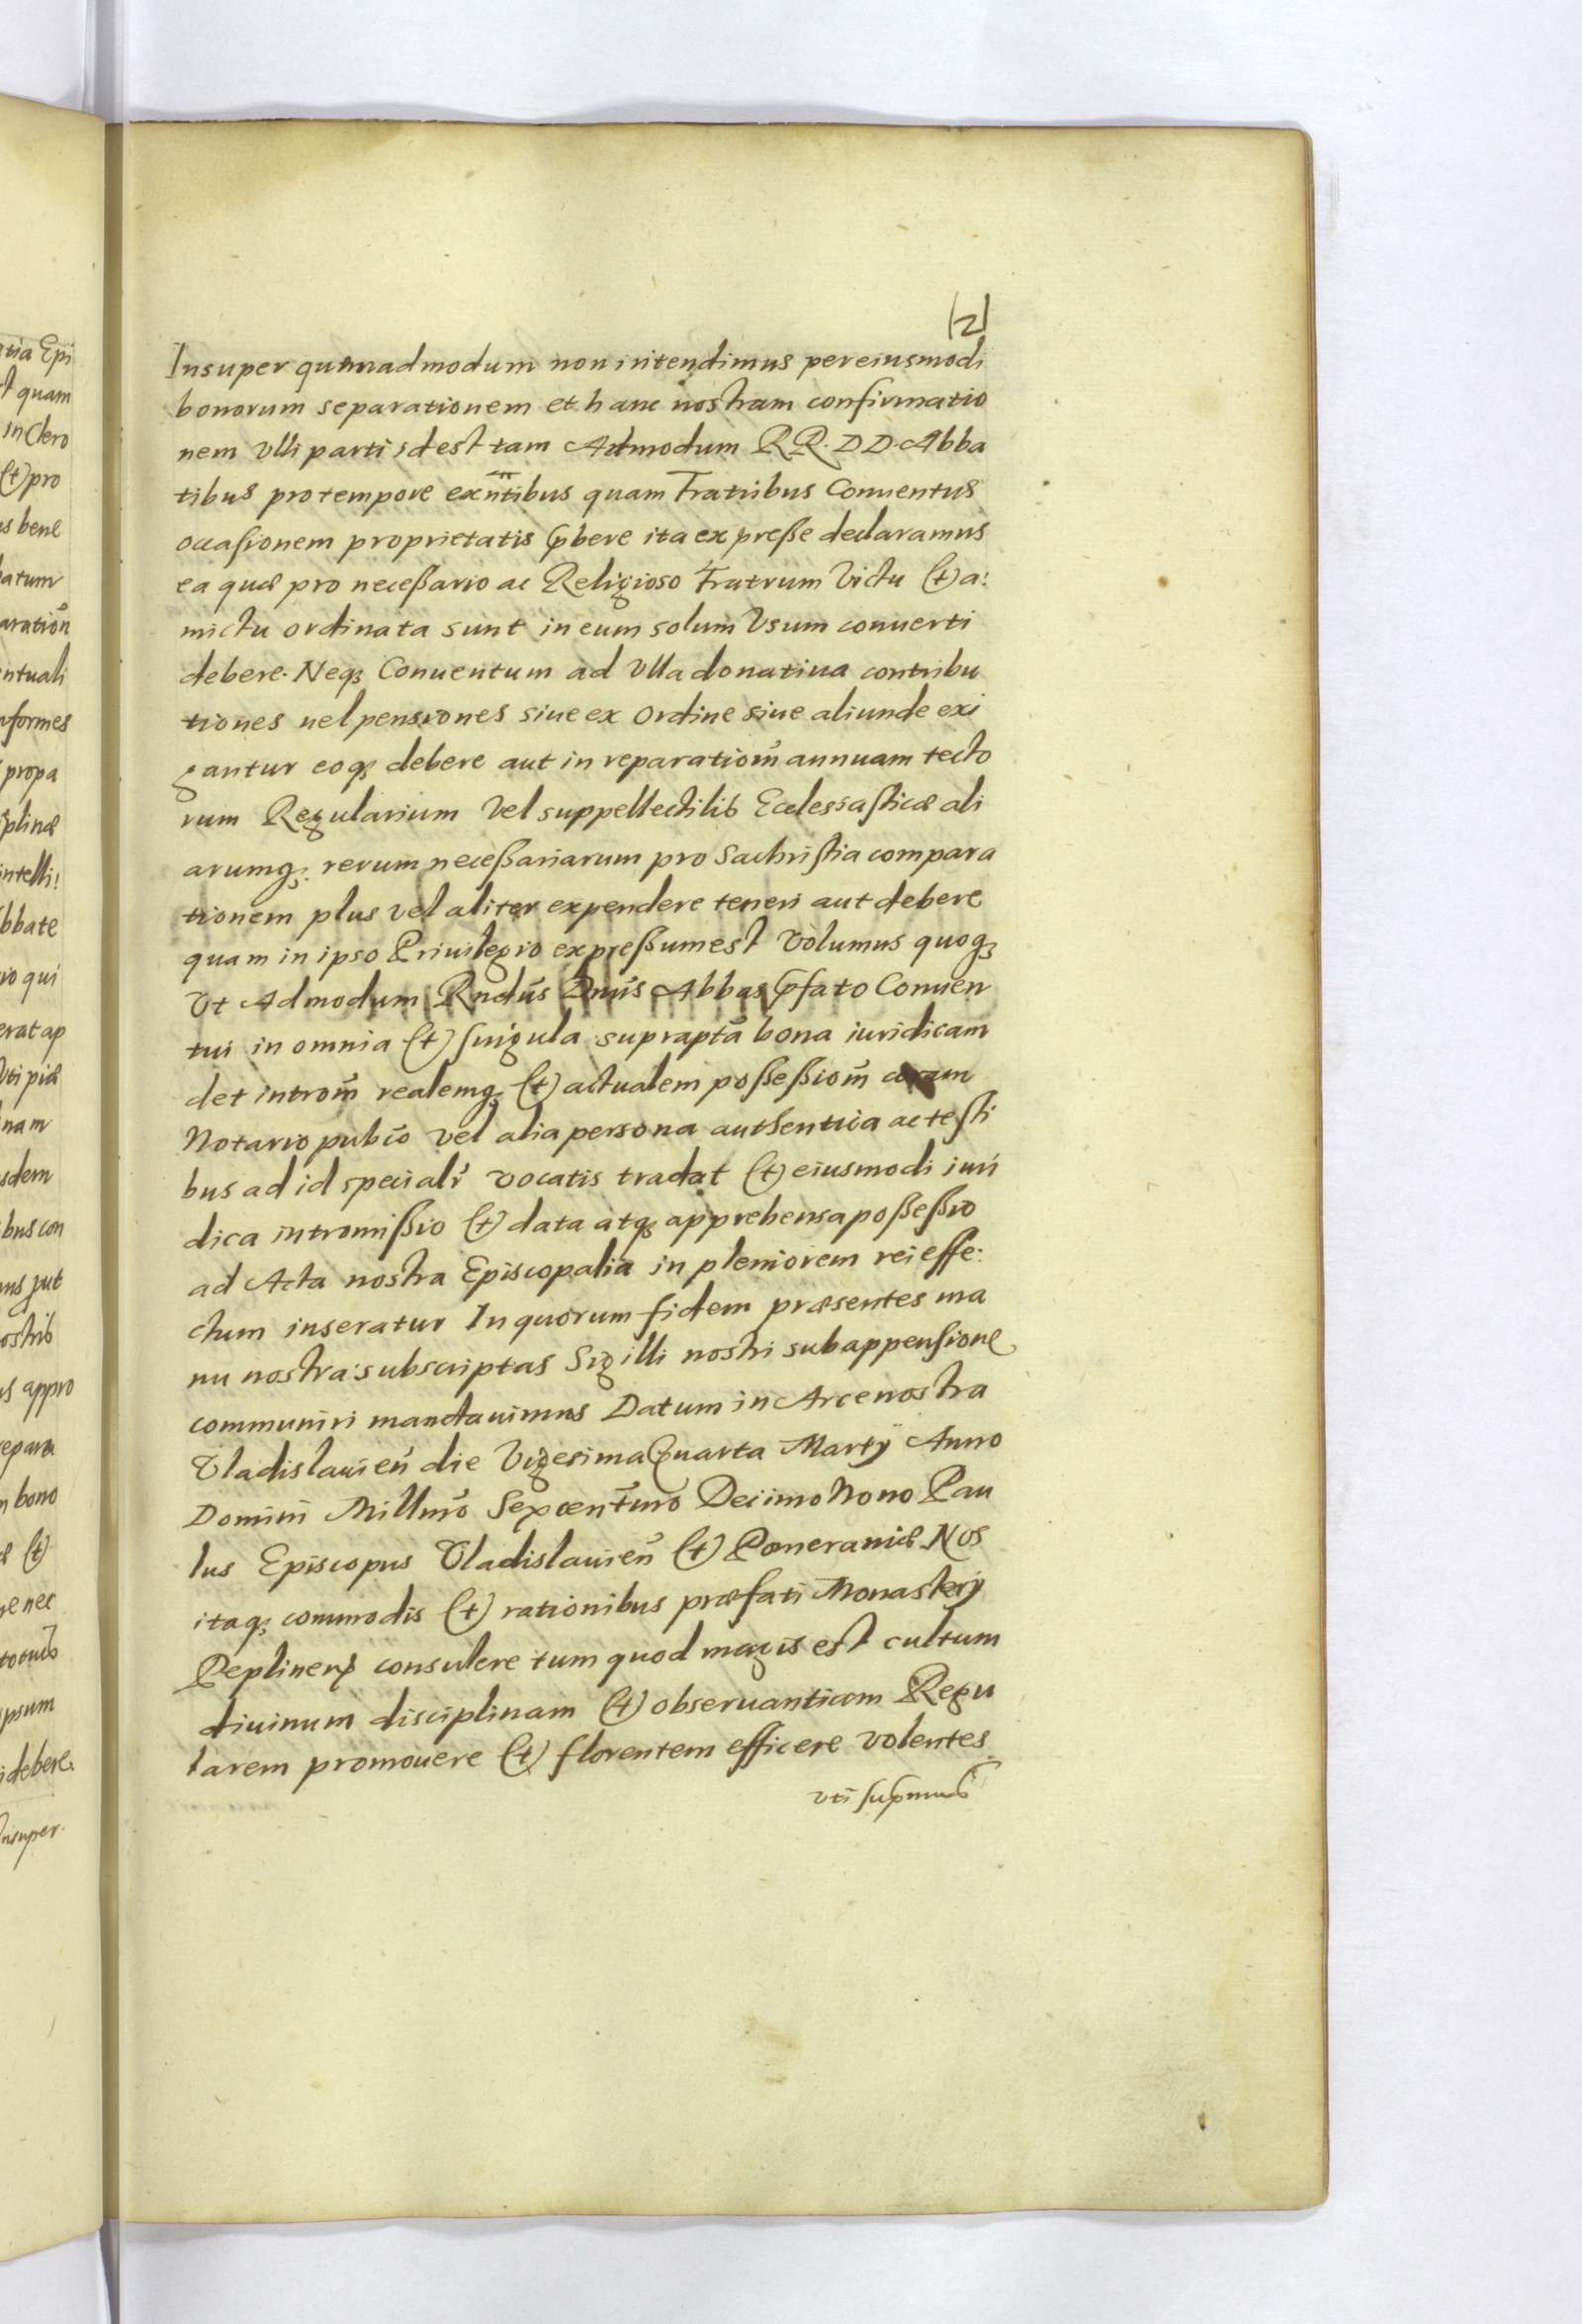 |2|
Insuper quemadmodum non intendimus per eiusmodi
bonorum separationem et hanc nostram confirmatio
nem Vlli parti idest tam Admodum RR. DD. Abba
tibus pro tempore exñtibus quam Fratribus Conuentus
occasionem proprietatis p̃bere ita expresse declaramus
ea quæ pro necessario ac Religioso Fratrum Victu (et) a:
mictu ordinata sunt in eum solum Vsum conuerti
debere. Neqꝫ Conuentum ad Vlla donatiua contribu
tiones uel pensiones siue ex Ordine siue aliunde exi
gantur eoqꝫ debere aut in reparatiom̃ annuam tecto
rum Regularium Vel suppellectilis Ecclessasticæ ali
arumqꝫ rerum necessariarum pro Sachristia compara
tionem plus vel aliter expendere teneri aut debere
quam in ipso Priuilegio expressum est Volumus quoqꝫ
Vt Admodum Rndus̃ Dnus̃ Abbas p̃fato Conuen
tui in omnia (et) singula supraptã bona iuridicam
det introm̃ realemqꝫ (et) actualem possessiom̃ coram
Notario pubc̃o vel alia persona authentica ac testi
bus ad id specialr̃ vocatis tradat (et) eiusmodi iuri
dica intromissio (et) data atqꝫ apprehensa possessio
ad Acta nostra Episcopalia in pleniorem rei effe:
ctum inseratur In quorum fidem præsentes ma
nu nostra subscriptas Sigilli nostri subappensione
communiri mandauimus Datum in Arce nostra
Vladislauien̄ die Vigesima Quarta Martÿ Anno
Domini Millm̃o Sexcentm̃o Decimo Nono Pau
lus Episcopus Vladislauien̄ (et) Pomeraniæ Nos
itaqꝫ commodis (et) rationibus præfati Monasterÿ
Peplinen̄ consulere tum quod magis est cultum
diuinum disciplinam (et) obseruantiam Regu
larem promouere (et) florentem efficere volentes
vti
tia Epi
t quam
in Clero
(et) pro
s bene
atum
aration̄
ntuali
nformes
propa
plinæ
intelli:
bbate
io qui
erat ap
Vti piæ
nam
sdem
bus con
ostris
s appro
epara
n bono
æ (et)
e nec
ipsum
i debere.
Insuper.